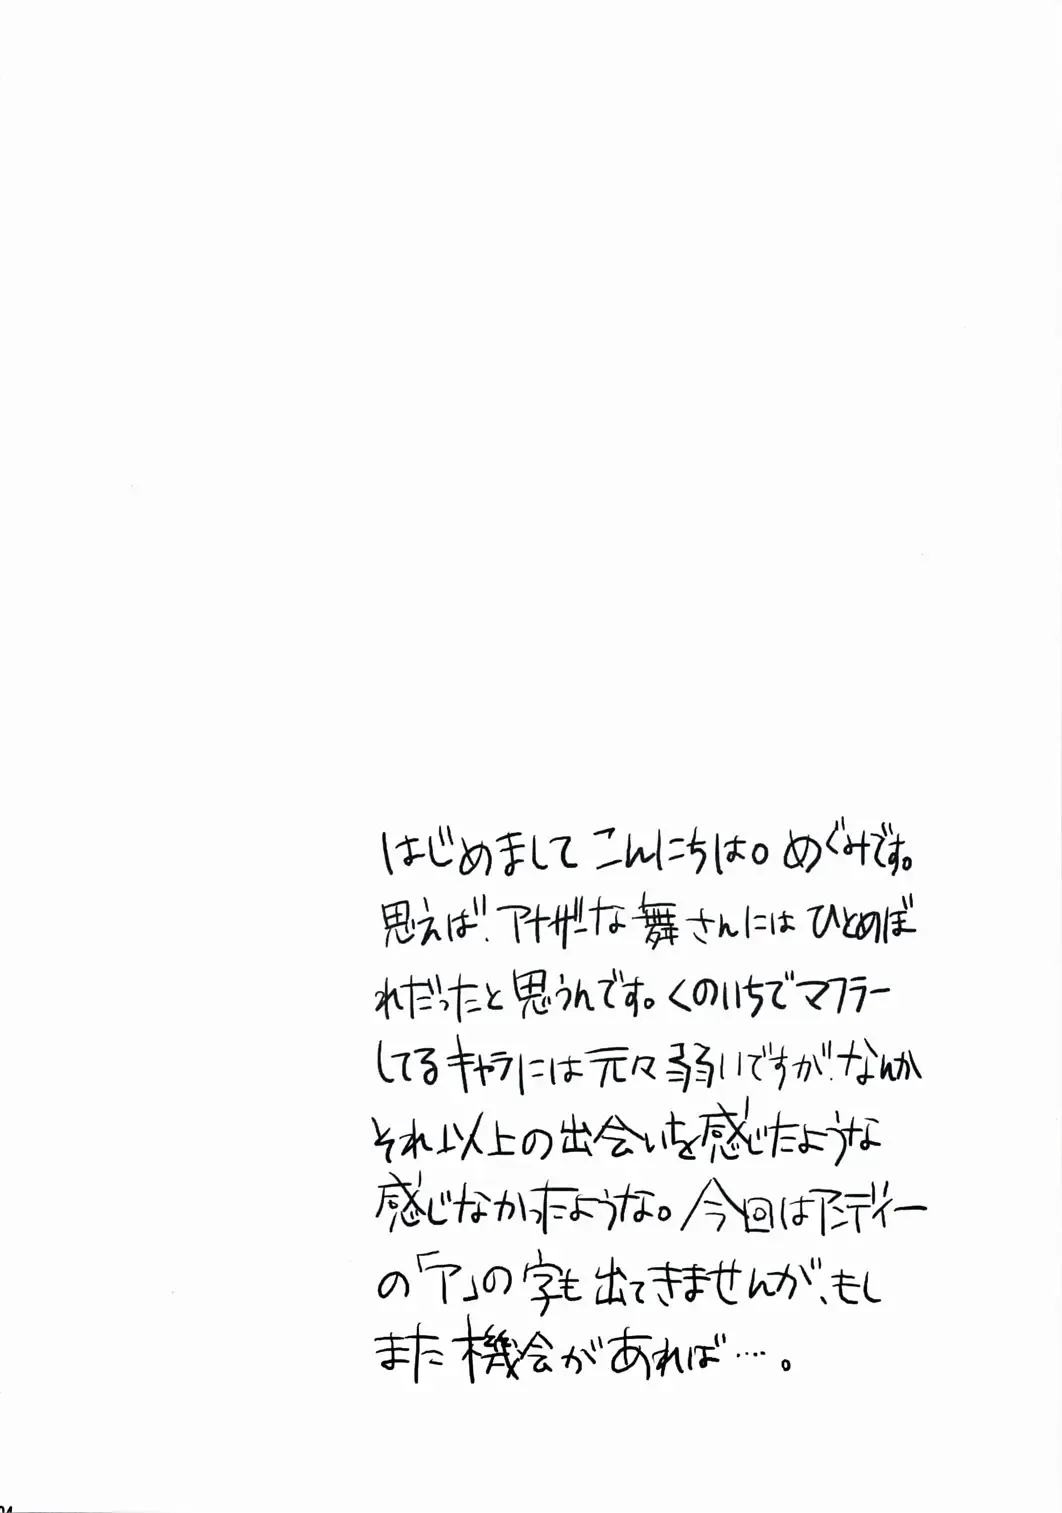 はじめまして こんにちは。めぐみです。
思えば、アナザーな舞さんには ひとめぼ
れだったと思うんです。くのいちでマフラー
してるキャラには元々弱いですが、なんか
それ以上の出会いを感じたような
感じなかったような。今回はアンディー
の「ア」の字も出てきませんが、もし
また機会があれば…。